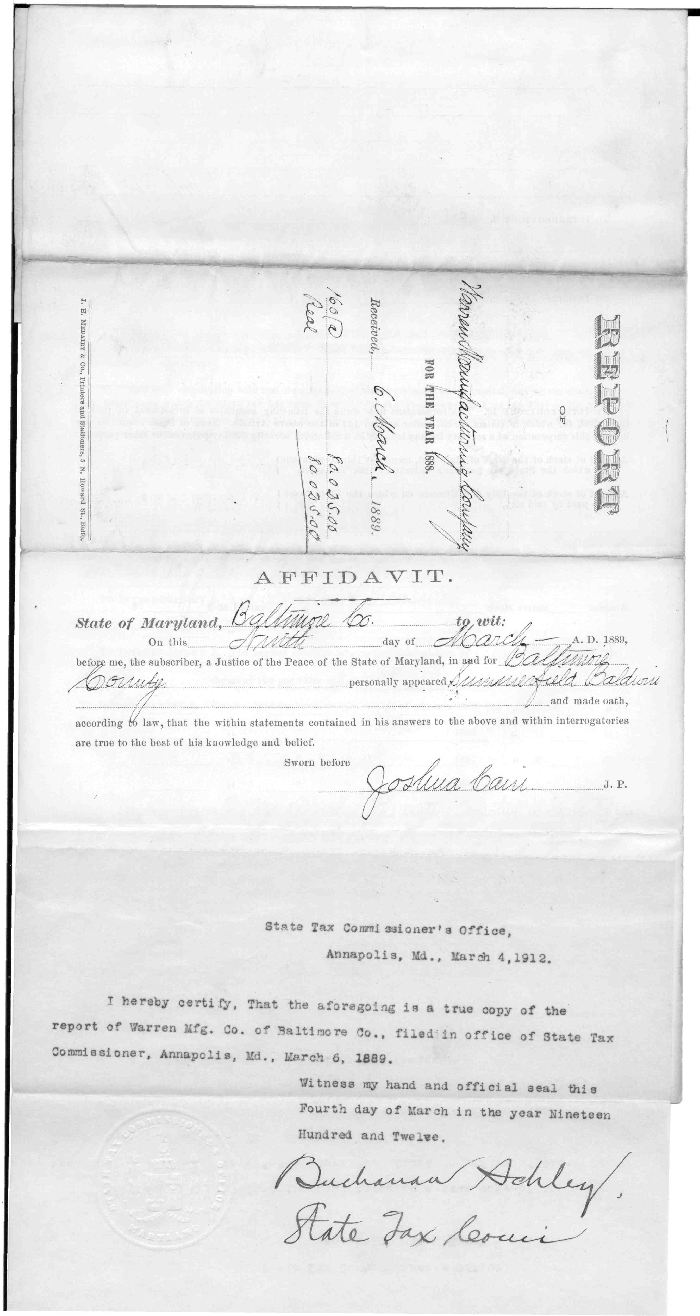 REPORT
OF
Warren Manufacturing Company
FOR THE YEAR 1888.
Received, 6. March, 1889.
160 @ 80.025.00
Real 80025.00
J. H. MEDAIRY & Co., Printers and Stationers, 5 N. Howard St., Balto.
AFFIDAVIT.
State of Maryland, Baltimore Co. to wit:
On this day of March A. D. 1889,
before me, the subscriber, a Justice of the Peace of the State of Maryland, in and for Baltimore
County personally appeared Summerfield Baldwin
and made oath,
according to law, that the within statements contained in his answers to the above and within interrogatories
are true to the best of his knowledge and belief.
Sworn before
Joshua Cain J. P.
State Tax Commissioner's Office,
Annapolis, Md., March 4,1912.
I hereby certify, That the aforegoing is a true copy of the
report of Warren Mfg. Co. of Baltimore Co., filed in office of State Tax
Commissioner, Annapolis, Md., March 6, 1889.
Witness my hand and official seal this
Fourth day of March in the year Nineteen
Hundred and Twelve.
Buchanan Schley,
State Tax Comr